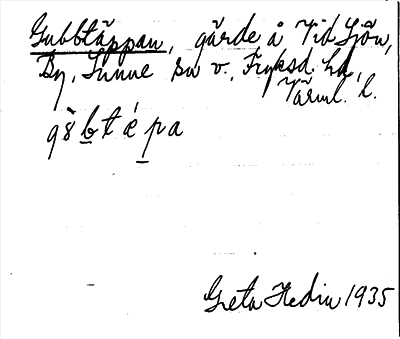 Gubbtäppan, gärde å Tid Sjön,
By, Sunne sn v., Fryksd. hd,
Värml. l.
gòbtépa
Greta Hedin 1935